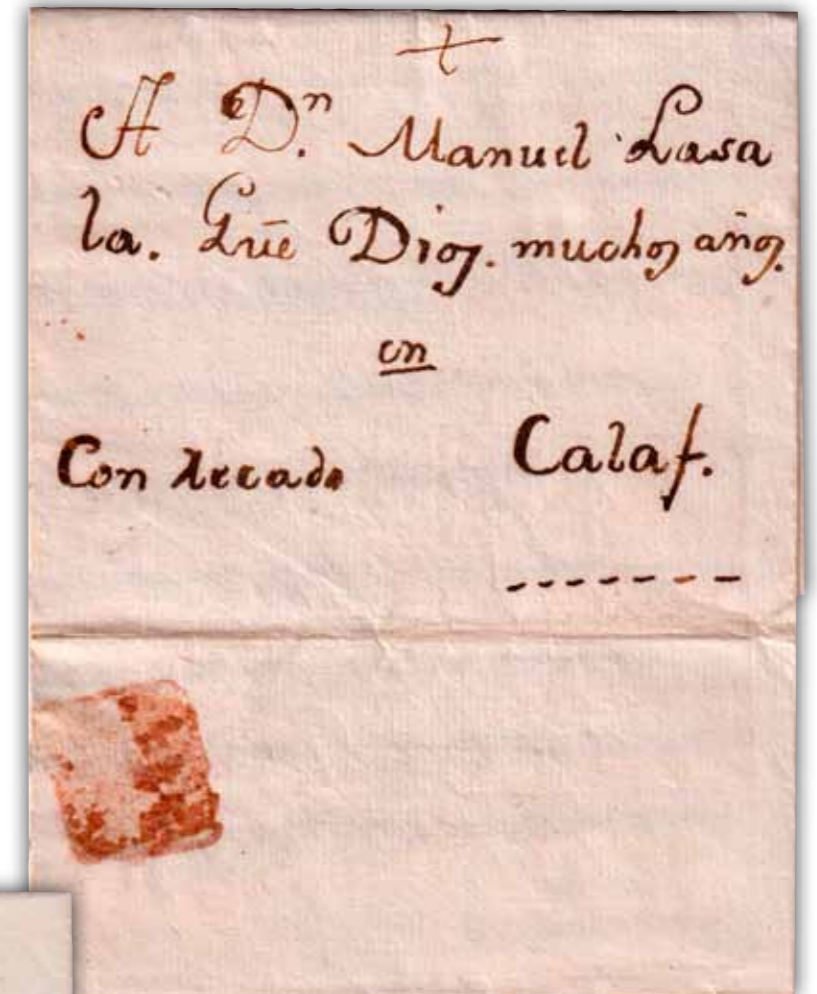 +
A Dn. Manuel Lasa
la. Gūe Dios. muchos años.
en
Con Recado Calaf.